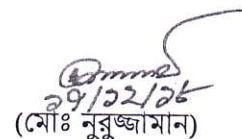 ২৭/১২/১৮
(মোঃ নুরুজ্জামান)